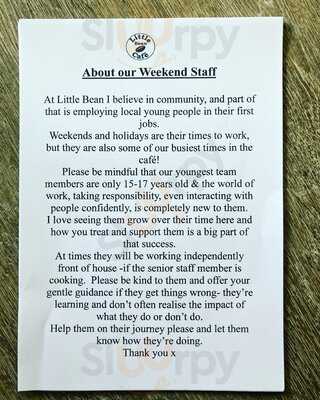 Little
Bean
Café
About our Weekend Staff
At Little Bean I believe in community, and part of
that is employing local young people in their first
jobs.
Weekends and holidays are their times to work,
but they are also some of our busiest times in the
café!
Please be mindful that our youngest team
members are only 15-17 years old & the world of
work, taking responsibility, even interacting with
people confidently, is completely new to them.
I love seeing them grow over their time here and
how you treat and support them is a big part of
that success.
At times they will be working independently
front of house -if the senior staff member is
cooking.  Please be kind to them and offer your
gentle guidance if they get things wrong- they’re
learning and don’t often realise the impact of
what they do or don’t do.
Help them on their journey please and let them
know how they’re doing.
Thank you x